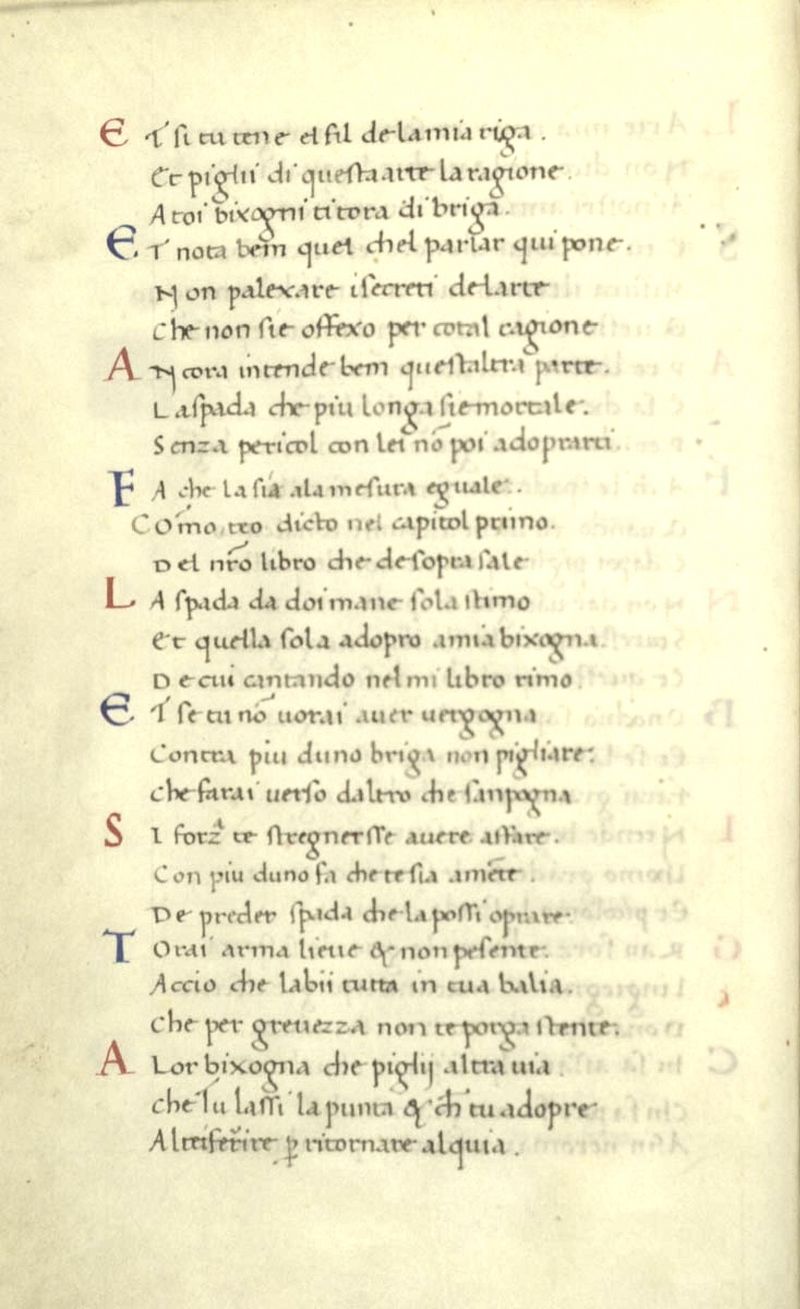 ET si tu tene el fil de la mia riga .
Et piglii di questa arte la ragione .
A toi bixogni ti tora di briga .
ET nota bem quel chel parlar qui pone .
Non palexare i secreti de larte
Che non sie offexo per cotal cagione
ANcora intende bem questaltra parte .
La spada che piu longa sie mortale .
Senza pericol con lei nō poi adoprarti .
FA che la sia a la mesura eguale .
Como, tto dicto nel capitol primo .
Del nr̄o libro che de sopra sale
LA spada da doi mane sola stimo
Et quella sola adopro a mia bixogna .
De cui cantando nel mi libro rimo
ET se tu nō uorai auer uergogna
Contra piu duno briga non pigliare .
che farai uerso daltro che sanpogna
SI forza te stregnersse auere affare .
Con piu duno fa che te sia a mēte .
De preder spada che la possi oprare
Torai arma lieue & non pesente .
Accio che labii tutta in tua balia .
Che per greuezza non te porga stente .
ALor bixogna che piglij altra uia .
che lu lassi la punta & ch tu adopre
Altro ferire ꝑ ritornare alquia .